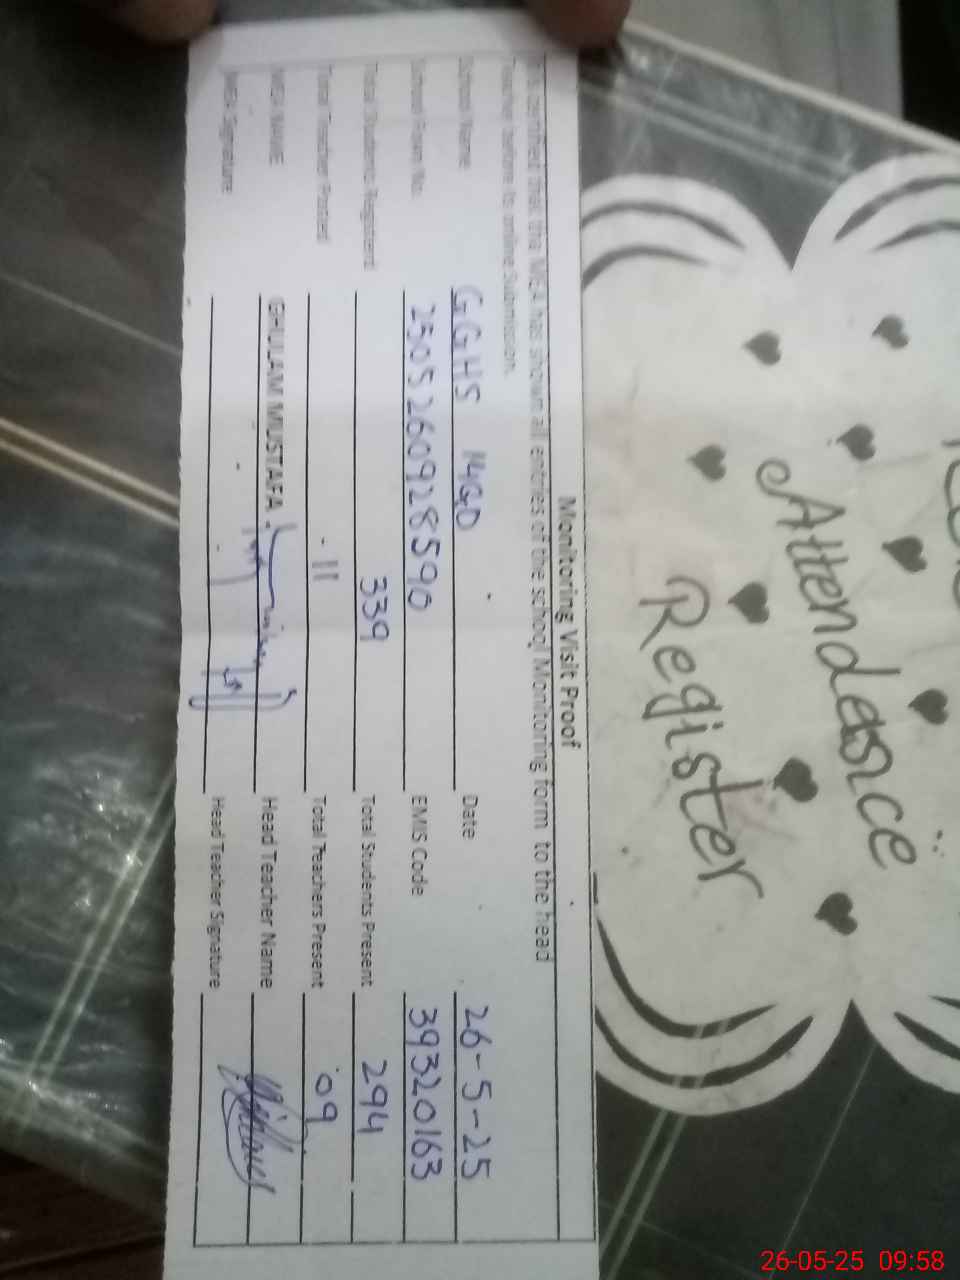 Monitoring Visit Proof
certified that the MEA has shown all entries of the school Monitoring form to the head
Teacher before its online Submission.
School Name GGHS 14GD Date 26-5-25
School Form No. 2505260928590 EMIS Code 39320163
Total Students Registered 339 Total Students Present 294
Total Teacher Posted 11 Total Teachers Present 09
MEA NAME GHULAM MUSTAFA Head Teacher Name
MEA Signature Head Teacher Signature
Attendance
Register
26-05-25 09:58